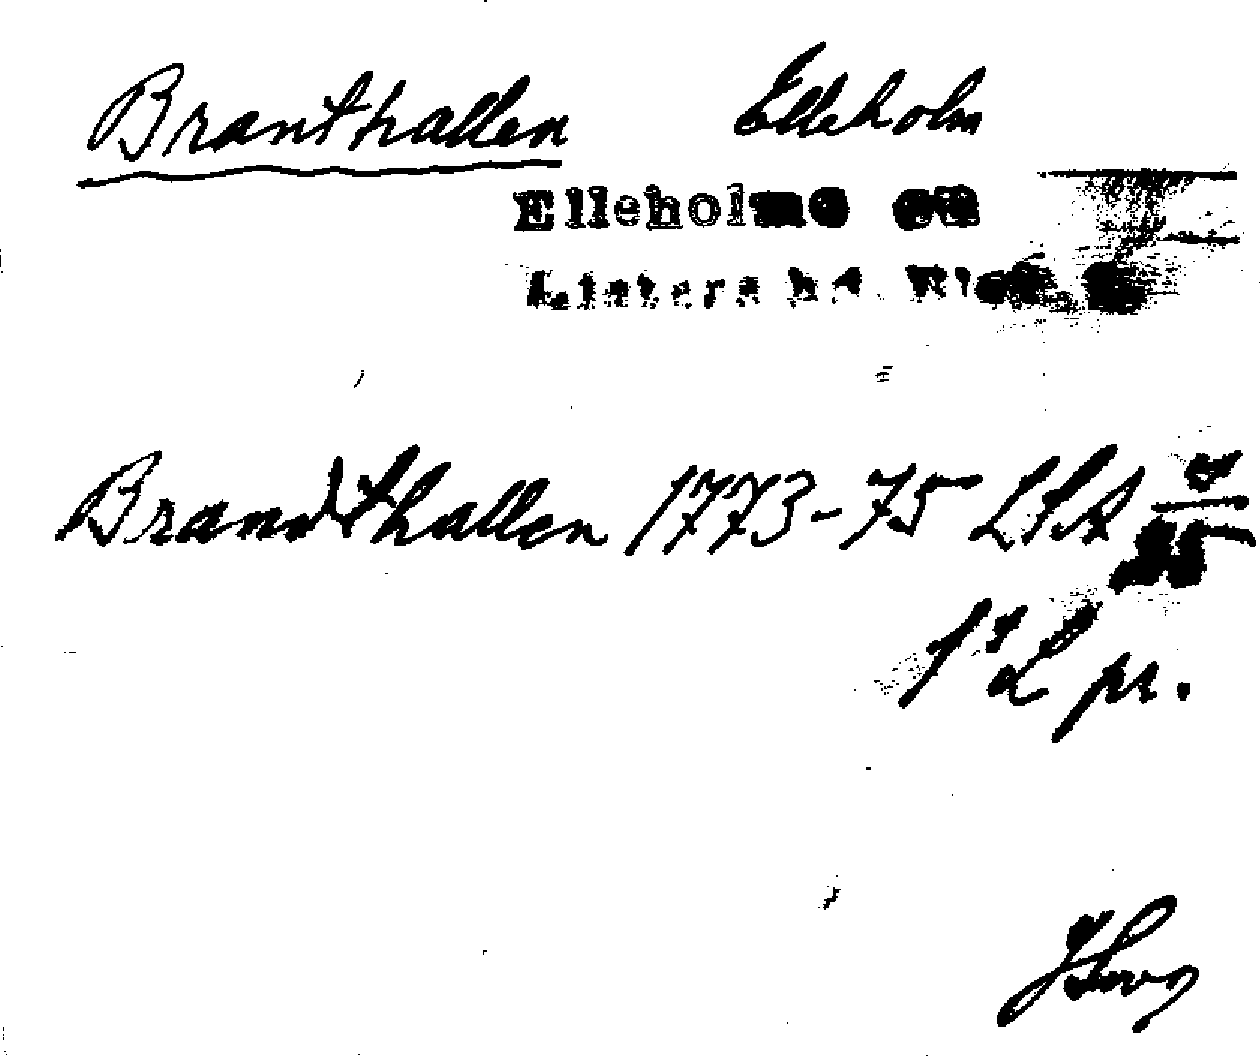 Branthallen Elleholm
Elleholms sn
Listers hd. Blek.
Brandthallen 1773-75 LSA
pr.